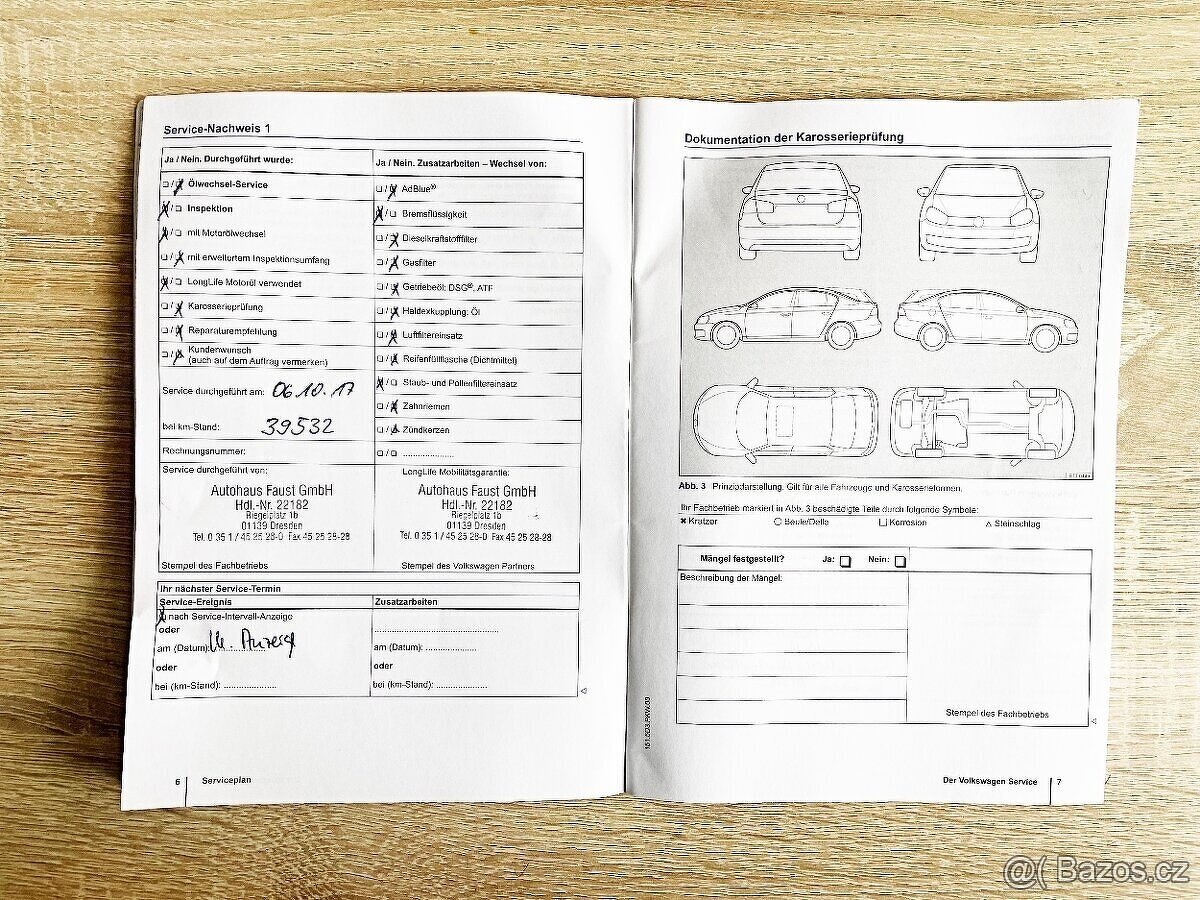 Service-Nachweis 1
Ja / Nein. Durchgeführt wurde:
Ölwechsel-Service
Inspektion
mit Motorölwechsel
mit erweitertem Inspektionsumfang
LongLife Motoröl verwendet
Karosserieprüfung
Reparaturempfehlung
Kundenwunsch
(auch auf dem Auftrag vermerken)
Service durchgeführt am: 06.10.17
bei km-Stand: 39532
Rechnungsnummer:
Ja / Nein. Zusatzarbeiten – Wechsel von:
AdBlue®
Bremsflüssigkeit
Dieselkraftstofffilter
Gasfilter
Getriebeöl: DSG®, ATF
Haldexkupplung: Öl
Luftfiltereinsatz
Reifenfüllflasche (Dichtmittel)
Staub- und Pollenfiltereinsatz
Zahnriemen
Zündkerzen
Service durchgeführt von:
Autohaus Faust GmbH
Hdl.-Nr. 22182
Riegelplatz 1b
01139 Dresden
Tel. 0 35 1 / 45 25 28-0 Fax 45 25 28-28
Stempel des Fachbetriebs
LongLife Mobilitätsgarantie:
Autohaus Faust GmbH
Hdl.-Nr. 22182
Riegelplatz 1b
01139 Dresden
Tel. 0 35 1 / 45 25 28-0 Fax 45 25 28-28
Stempel des Volkswagen Partners
Ihr nächster Service-Termin
Service-Ereignis
nach Service-Intervall-Anzeige
oder
am (Datum):
oder
bei (km-Stand):
Zusatzarbeiten
am (Datum):
oder
bei (km-Stand):
6 Serviceplan
Dokumentation der Karosserieprüfung
Abb. 3 Prinzipdarstellung. Gilt für alle Fahrzeuge und Karosserieformen.
Ihr Fachbetrieb markiert in Abb. 3 beschädigte Teile durch folgende Symbole:
Kratzer Beule/Delle Korrosion Steinschlag
Mängel festgestellt? Ja: Nein:
Beschreibung der Mängel:
Stempel des Fachbetriebs
Der Volkswagen Service 7
@( Bazos.cz